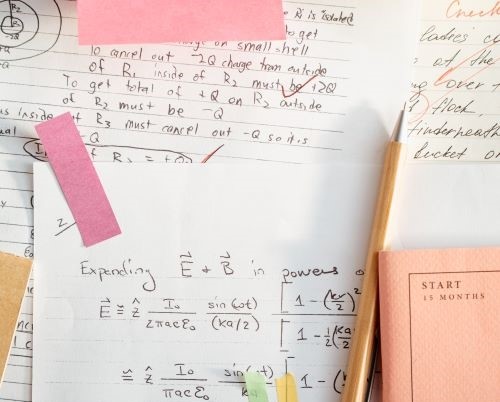 R₁ is isolated
on small shell
to get
to cancel out -2Q charge from outside
of R₁ inside of R₂ must be +2Q
To get total of +Q on R₂ outside
of R₂ must be -Q
inside of R₃ must cancel out -Q so it is
-Q
of R₃ = +Q
Check
ladies
of the
over
flock,
bucket
2
Expending E⃗ + B⃗ in powers
E⃗ ≅ ẑ I₀ / 2πacε₀ sin(ωt) / (ka/2) [ 1 - (kr/2)² / 1 - ½(ka
≅ ẑ I₀ / πacε₀ sin(ωt) / ka [ 1 - (k
START
15 MONTHS